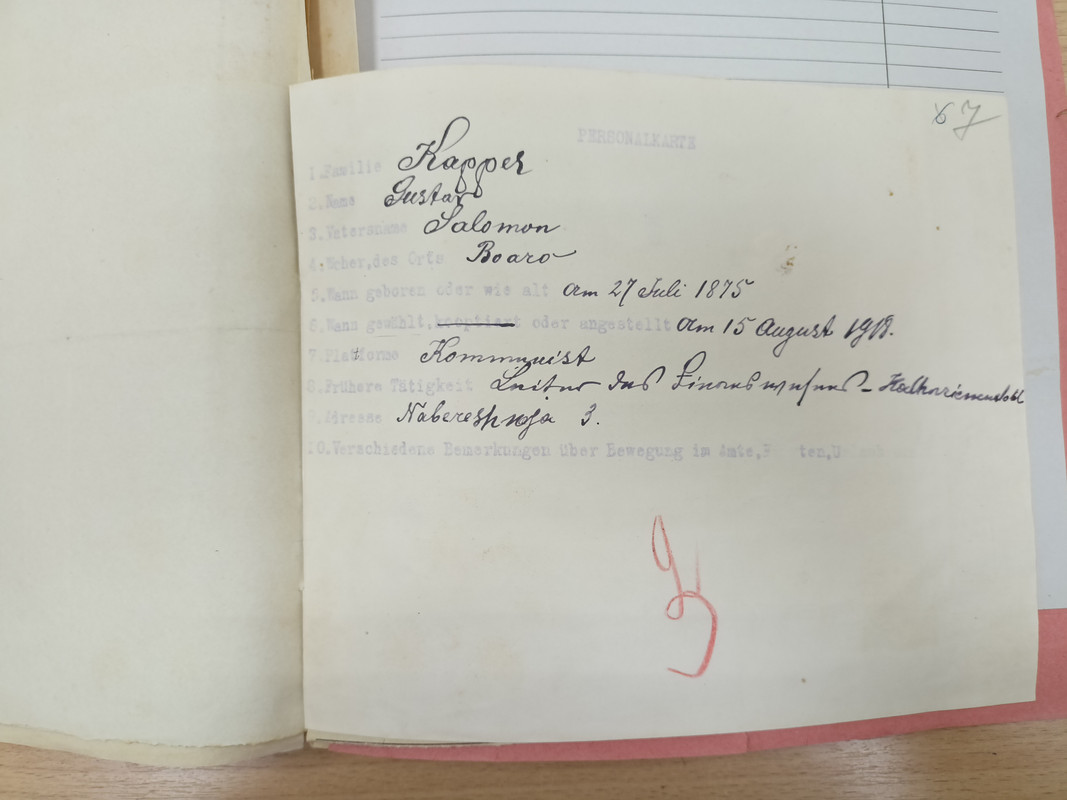 67
PERSONALKARTE
1.Familie Kapper
2.Name Gustav
3.Vatersname Salomon
4.Woher,des Orts Boaro
5.Wann geboren oder wie alt am 27 Juli 1875
6.Wann gewählt,kooptiert oder angestellt am 15 August 1918.
7.Platforme Kommunist
8.Frühere Tätigkeit Leiter des Finanswesens -
9.Adresse Nabereshnaja 3.
10.Verschiedene Bemerkungen über Bewegung im Amte,